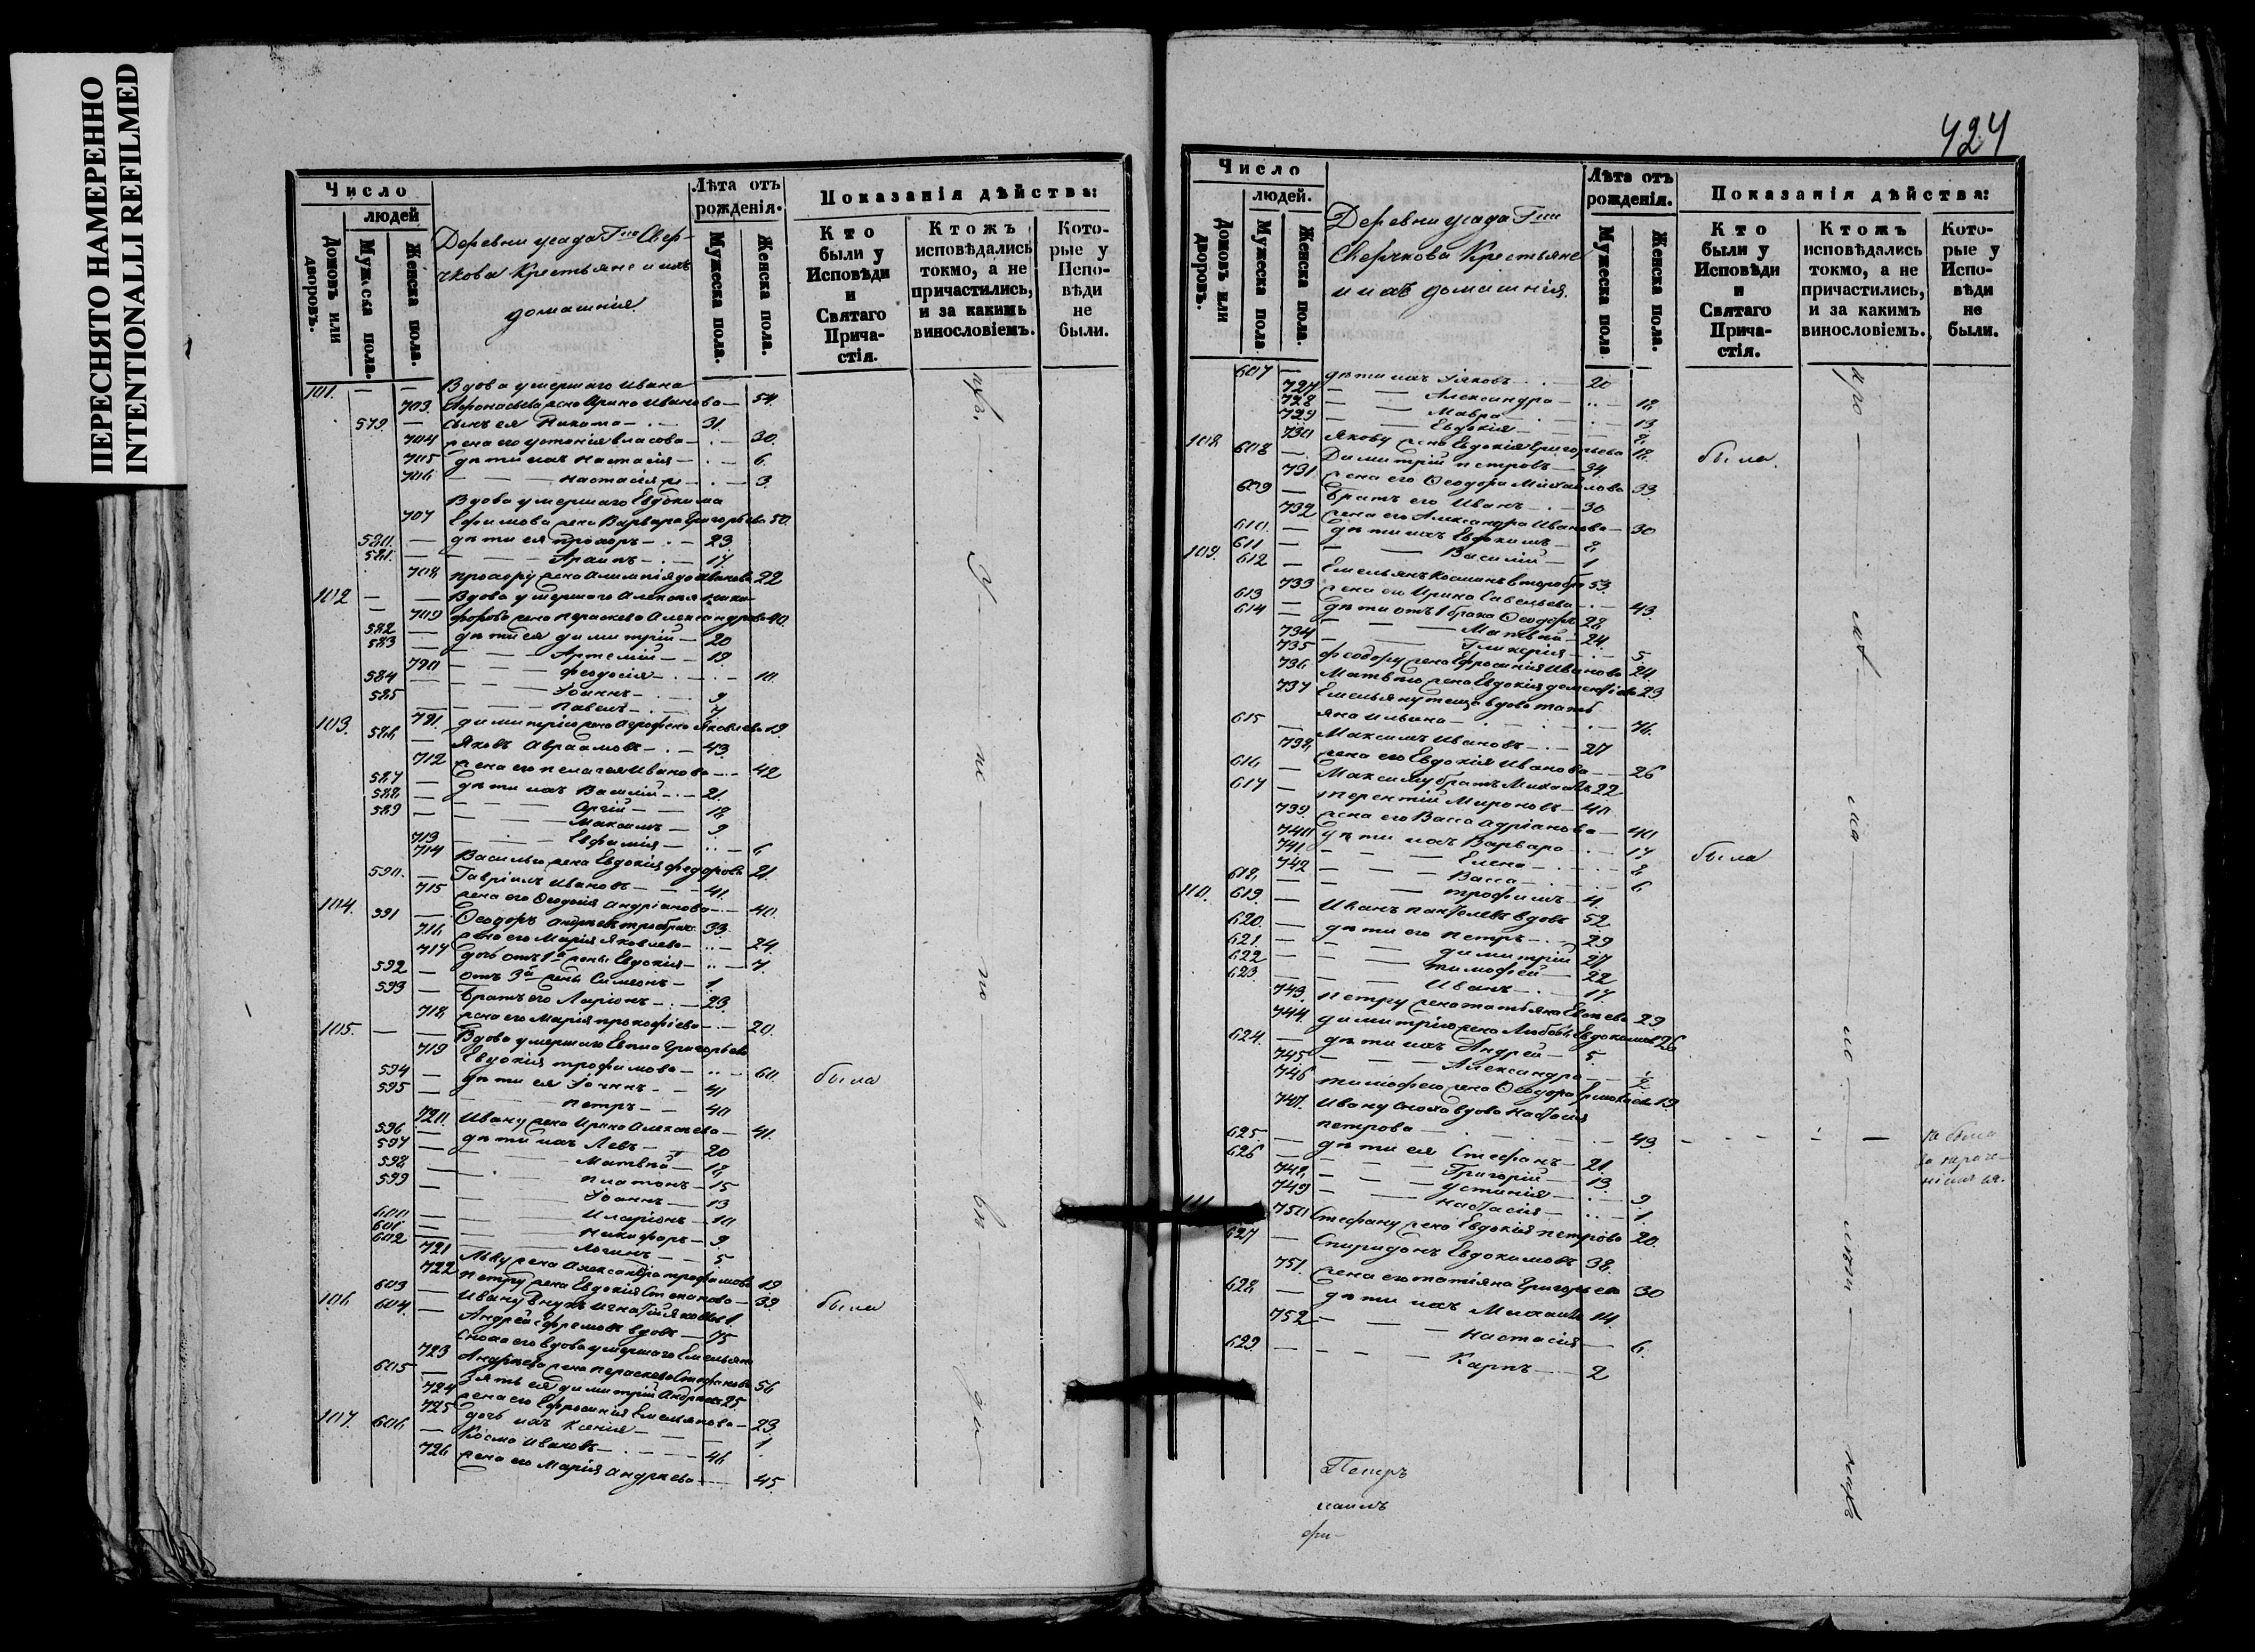 ПЕРЕСНЯТО НАМЕРЕННО
INTENTIONALLI REFILMED
Число
людей
Домовъ или дворовъ.
Мужеска пола.
Женска пола.
Деревни усада Гна Свер-
чкова Крестьяне и ихъ
домашнія.
Лѣта отъ
рожденія.
Мужеска пола.
Женска пола.
Показанія дѣйства:
Кто
были у
Исповѣди
и
Святаго
Прича-
стія.
Ктожъ
исповѣдались
токмо, а не
причастились,
и за какимъ
винословіемъ.
Кото-
рые у
Испо-
вѣди
не
были.
101. — — Вдова умершаго Ивана
703. жена Ирина Иванова — 54.
579. — сынъ ея — 31.
704 жена его Устинія Власова — 30.
705 дѣти ихъ Настасія — 6.
706 Настасія — 3.
Вдова умершаго Евдокима
707 Ефимова жена Варвара Григорьева 50.
580. — дѣти ея Прохоръ — 23
581. — Архипъ — 17.
708 Прохору жена 22
102 — — Вдова умершаго Алексѣя Ники-
709 форова жена Параскева Александрова 40.
582 — дѣти ея Димитрій — 20
583 — Артемій — 19.
720 Феодосія — 10.
584 — Іоаннъ — 9
585 — Павелъ — 7
721 Димитрію жена Агрофена Яковлева 19.
103. 586 — Яковъ Авраамовъ — 43.
712 жена его Пелагея Иванова — 42
587 — дѣти ихъ Василій — 21.
588 — Сергій — 18
589 — Максимъ — 9
713 Евфимія — 6
714 Василью жена Евдокія Федорова 21.
590. — Гавріилъ Ивановъ — 41.
715 жена его Феодосія Андріанова — 40.
104. 591 — Феодоръ Андреевъ 33.
716 жена его Марія Яковлева — 24.
717 дочь отъ 1й жены Евдокія — 7.
592 — отъ 3й жены Симеонъ — 1
593 — Братъ его Ларіонъ — 23.
718 жена его Марія Прокофіева — 20.
105. — — Вдова умершаго Григорьева
719 Евдокія Трофимова — 60. была
594 — дѣти ея Іоаннъ — 41
595 — Петръ — 40
720. Ивану жена Ирина Алексѣева — 41.
596 — дѣти ихъ Левъ — 20
597 — Матвѣй — 18
598 — Платонъ — 15
599 — Іоаннъ — 13
600 — Иларіонъ — 10
601 — Никифоръ — 9
602 — Логинъ — 5
721 Льву жена Александра Трофимова 19
722 Петру жена Евдокія Степанова — 39
603 — Ивану внукъ Игнатій 1. была
106 604 — Андрей Ефремовъ вдовъ — 75
Сноха его вдова умершаго Емельяна
723 Андреева жена Параскева Стефанова 56
605 — Зять ея Димитрій Андреевъ 25.
724 жена его Ефросинія Емельянова — 23.
725 дочь ихъ Ксенія — 1
107. 606 — Косма Ивановъ — 46
726 жена его Марія Андреева — 45.
424
Число
людей.
Домовъ или дворовъ.
Мужеска пола
Женска пола.
Деревни усада Гна
Сверчкова Крестьяне
и ихъ домашнія.
Лѣта отъ
рожденія.
Мужеска пола
Женска пола.
Показанія дѣйства:
Кто
были у
Исповѣди
и
Святаго
Прича-
стія.
Ктожъ
исповѣдались
токмо, а не
причастились,
и за какимъ
винословіемъ.
Кото-
рые у
Испо-
вѣди
не
были.
607 — дѣти ихъ Яковъ — 20
727 Александра — 18
728 Мавра — 13
729 Евдокія — 8
730 Якову жена Евдокія Григорьева 18. была.
108 608 — Димитрій Петровъ — 34.
731 жена его Феодора Михайлова 33
609 — Братъ его Иванъ — 30
732 жена его Александра Иванова — 30
610. — дѣти ихъ Евдокимъ — 8
611 — Василій — 1
109. 612 — Емельянъ Косминъ второбр. 53.
733 жена его Ирина Савельева — 43.
613 — дѣти отъ 1 брака Феодоръ 28
614 — Матвѣй — 24.
734 Гликерія — 5
735 Феодору жена Ефросинія Иванова 24.
736 Матвѣю жена Евдокія 23
737 Емельяну теща вдова Тать-
яна Ильина — 76.
615 — Максимъ Ивановъ — 27
738 жена его Евдокія Иванова — 26
616 — Максиму братъ Михаилъ 22
617 — Терентій Мироновъ — 40
739. жена его Васса Адріанова — 40
740 дѣти ихъ Варвара — 17 была
741 Елена — 8
742 Васса — 6
618 — Трофимъ — 4.
110. 619. — Иванъ вдовъ 52.
620. — дѣти его Петръ — 29
621. — Димитрій 27
622 — Тимофей — 22
623 — Иванъ — 17.
743. Петру жена Татьяна 29
744. Димитрію жена Любовь Евдокимова 26
624. — дѣти ихъ Андрей — 5.
745 Александра — ½
746 Тимофею жена Феодора 19
747. Ивану сноха вдова Настасія
Петрова — 43 не была
625 — дѣти ея Стефанъ — 21.
626 — Григорій — 13.
748 Устинія — 9
749 Настасія — 1.
750 Стефану жена Евдокія Петрова 20.
111 627 — Спиридонъ Евдокимовъ 38.
751. жена его Татіяна Григорьева 30
628 — дѣти ихъ Михаилъ 14.
752 Настасія — 6.
629 — Карпъ — 2
Петръ